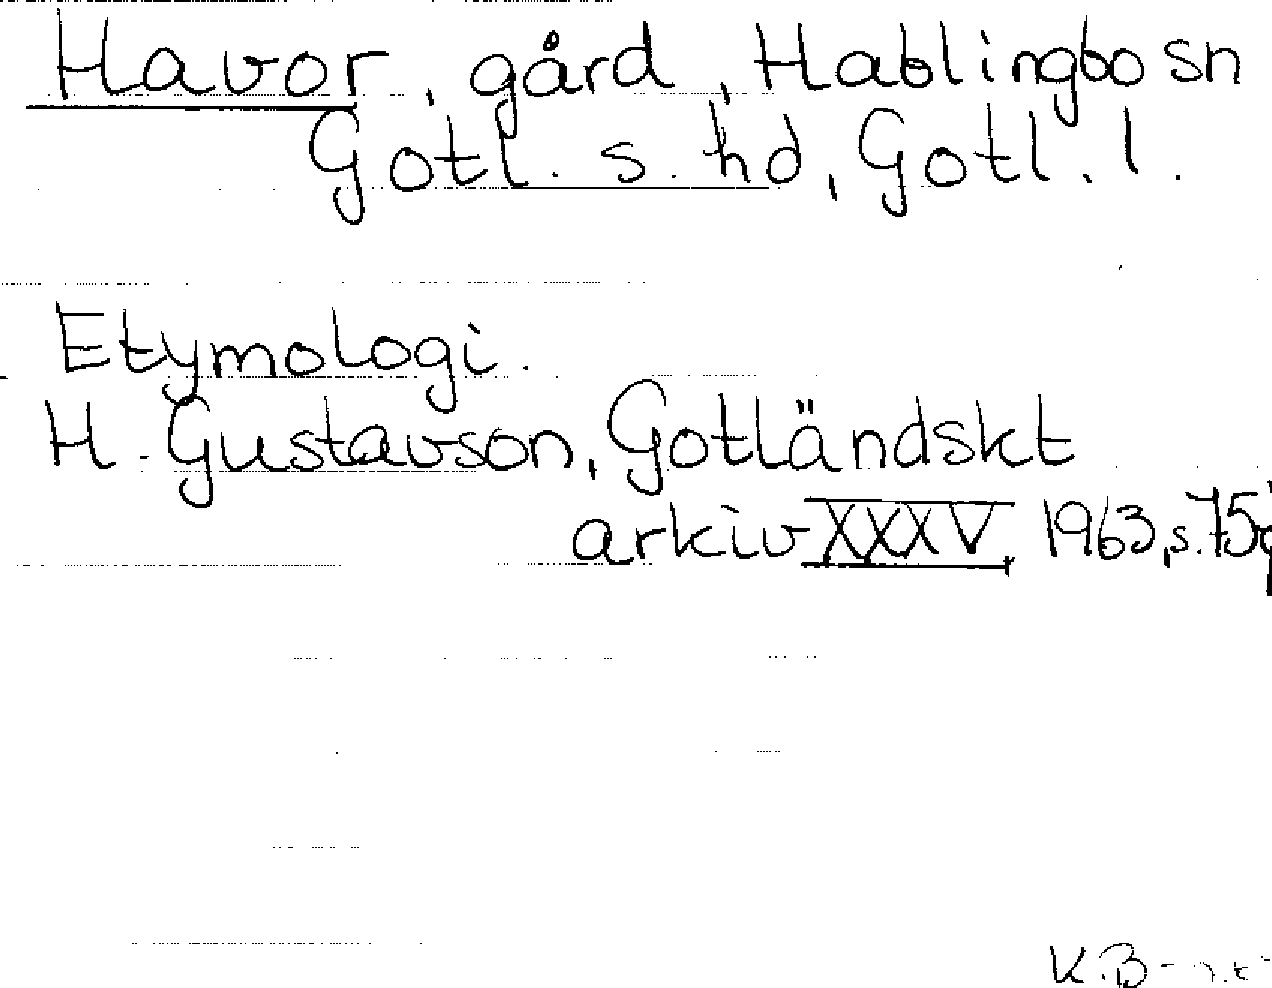 Havor, gård, Hablingbo sn
Gotl. s. hd, Gotl. l.
Etymologi.
H. Gustavson, Gotländskt
arkiv XXXV, 1963, s. 75
K.B